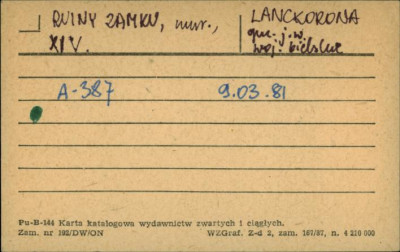 RUINY ZAMKU, mur.,
XIV.
LANCKORONA
gm. j.w.
woj. bielskie
A-387 9.03.81
Pu-B-144 Karta katalogowa wydawnictw zwartych i ciągłych.
Zam. nr 192/DW/ON WZGraf. Z-d 2, zam. 167/87, n. 4 210 000